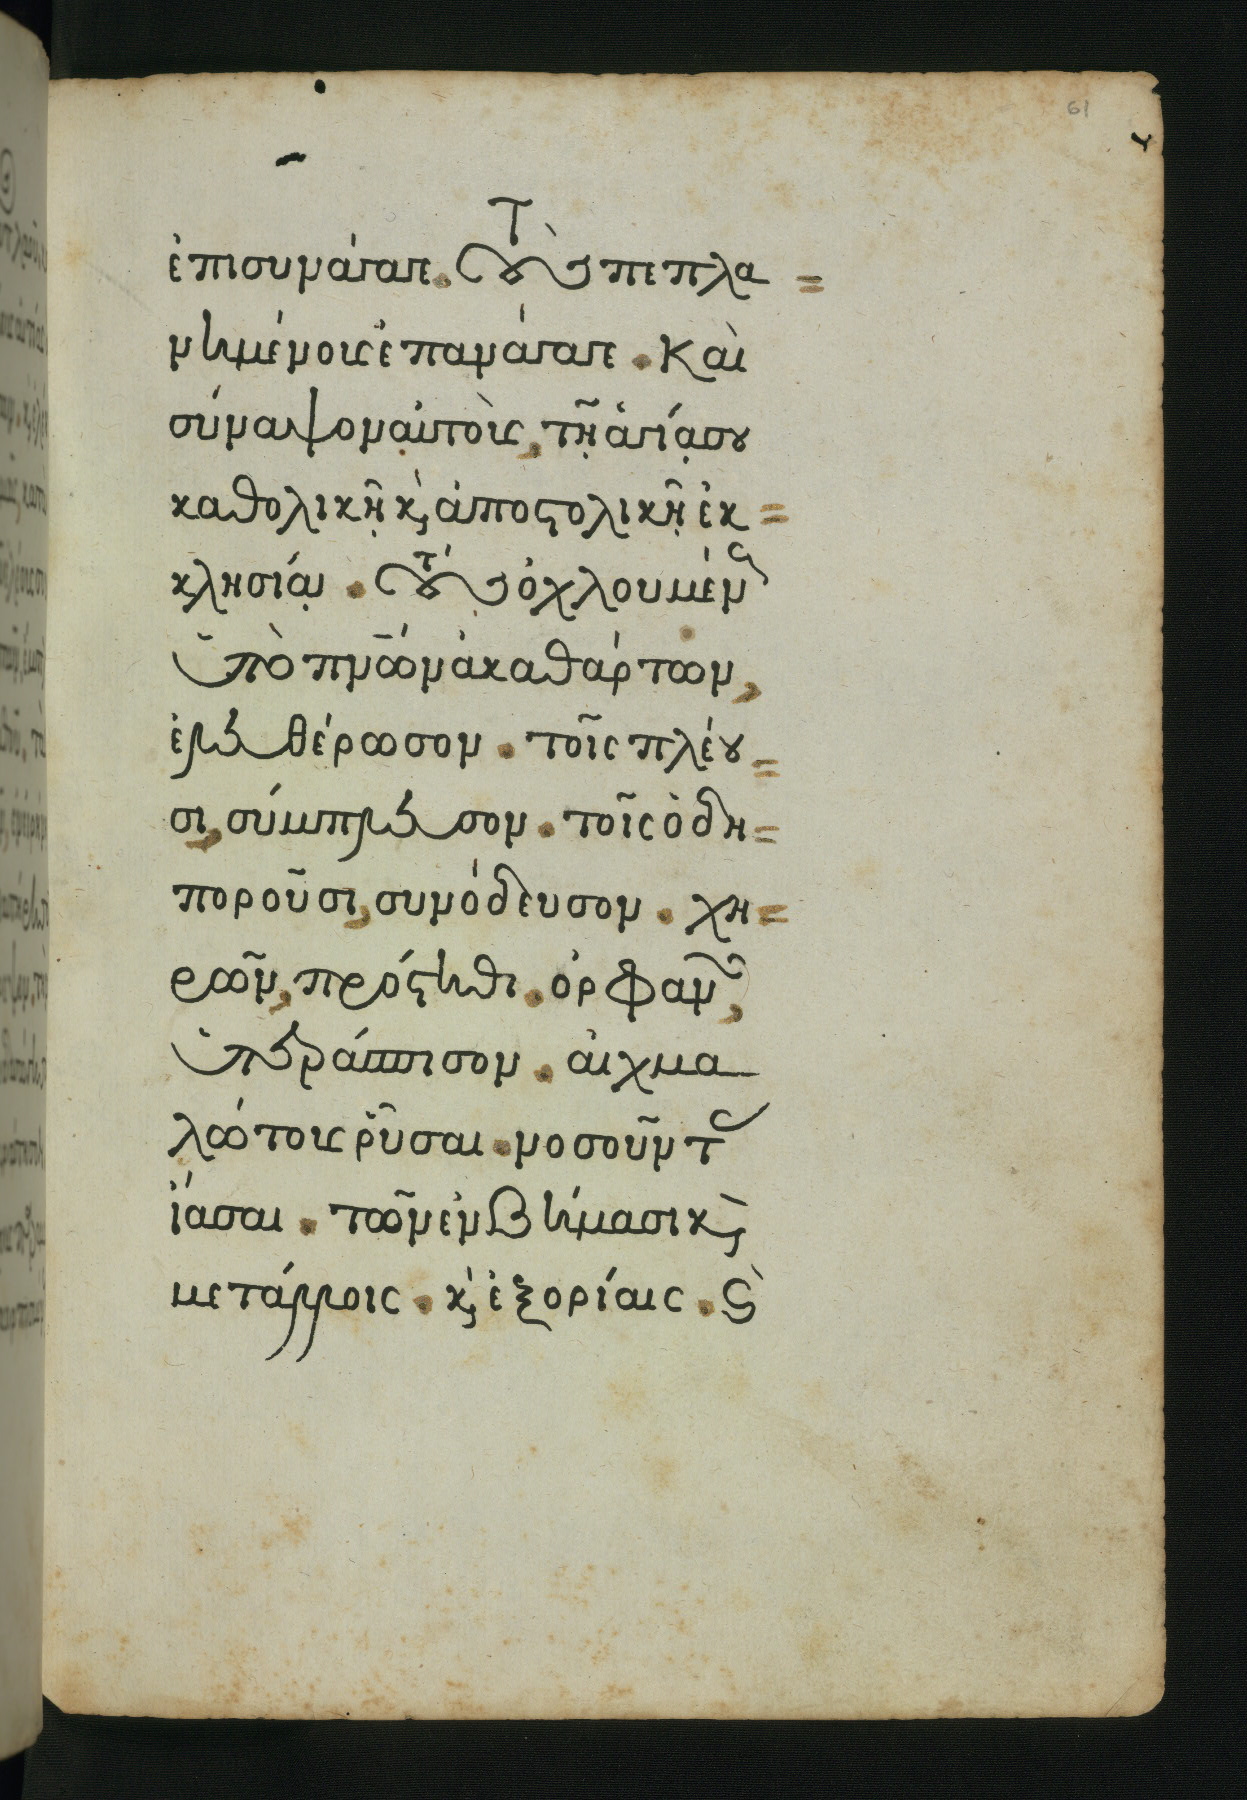 61
ἐπισυνάγαγε. τοὺς πεπλα=
νημένους ἐπανάγαγε. Καὶ
σύναψον αὐτοὺς, τῇ ἁγίᾳ σου
καθολικῇ κ̀ ἀποστολικῇ ἐκ=
κλησίᾳ. τοὺς ὀχλουμένους
ὑπὸ πνῶν ἀκαθάρτων,
ἐλευθέρωσον. τοῖς πλέου=
σι, σύμπλευσον. τοῖς ὁδη=
ποροῦσι, συνόδευσον. χη=
ρῶν, πρόστηθι. ὀρφανῶν,
ὑπεράσπισον. αἰχμα
λώτους ῥῦσαι. νοσοῦντας
ἴασαι. τῶν ἐν βήμασι κ̀
μετάλλοις. κ̀ ἐξορίαις. κ̀